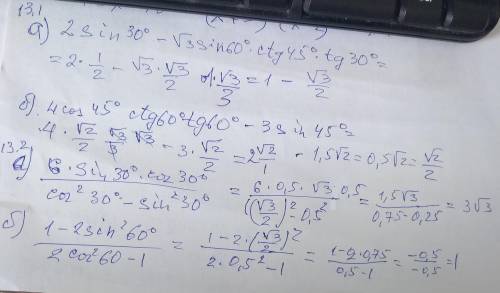 13.1
а) 2 sin 30° - √3 sin 60° · ctg 45° · tg 30° =
= 2 · 1/2 - √3 · √3/2 · 1 · √3/3 = 1 - √3/2
б) 4 cos 45° ctg 60° tg 60° - 3 sin 45° =
4 · √2/2 · √3/3 · √3 - 3 · √2/2 = 2√2/1 - 1,5√2 = 0,5√2 = √2/2
13.2
а) (6 · sin 30° · cos 30°)/(cos² 30° - sin² 30°) = (6 · 0,5 · √3 · 0,5)/((√3/2)² - 0,5²) = (1,5√3)/(0,75 - 0,25) = 3√3
б) (1 - 2 sin² 60°)/(2 cos² 60 - 1) = (1 - 2 · (√3/2)²)/(2 · 0,5² - 1) = (1 - 2 · 0,75)/(0,5 - 1) = (-0,5)/(-0,5) = 1